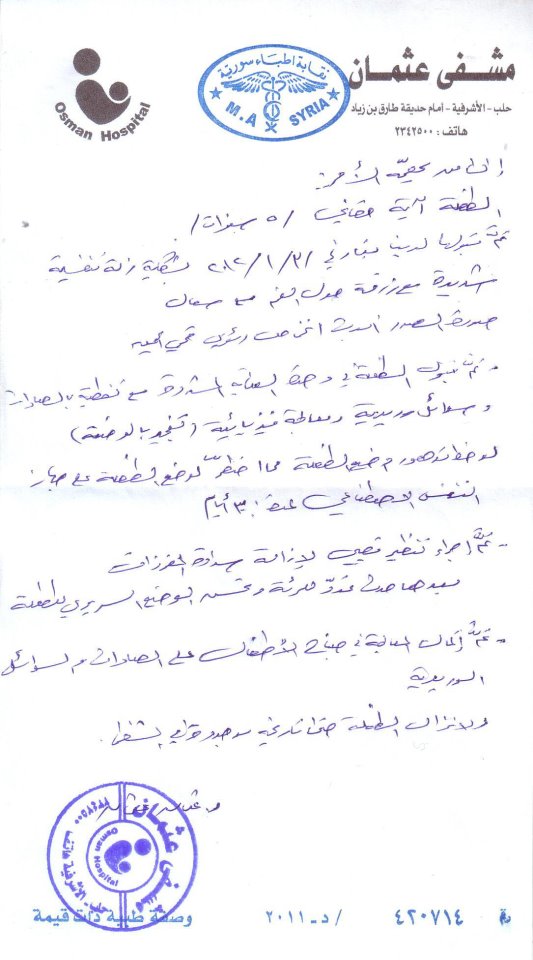 مشفى عثمان
حلب - الأشرفية - أمام حديقة طارق بن زياد
هاتف : ٢٣٤٢٥٠٠
نقابة اطباء سورية
M.A SYRIA
Osman Hospital
إلى من يهمه الأمر:
الطفلة آية /٥ سنوات/
تم قبولها لدينا بتاريخ ٣١/١/٢٠١٢ بشكاية زلة تنفسية
شديدة مع زرقة حول الفم مع سعال
صورة الصدر أبدت انخماص رئوي
- تم قبول الطفلة في العناية المشددة مع تغطية بالصادات
وسوائل وريدية ومعالجة فيزيائية (تفجير بالوضعة)
لوحظ تدهور وضع الطفلة مما اضطر لوضع الطفلة على جهاز
التنفس الاصطناعي لمدة ٣ أيام
- تم إجراء تنظير قصبي لإزالة سدادة المفرزات
بعدها حدث تمدد للرئة وتحسن الوضع السريري للطفلة
- تم إكمال المعالجة في جناح الأطفال على الصادات والسوائل
الوريدية
ولاتزال الطفلة حتى تاريخه موجودة في المشفى.
د.
مشفى عثمان
Osman Hospital
حلب - الأشرفية هاتف ٢٣٤٢٥٠٠
وصفة طبية ذات قيمة
/د - ٢٠١١
٤٢٠٧١٤